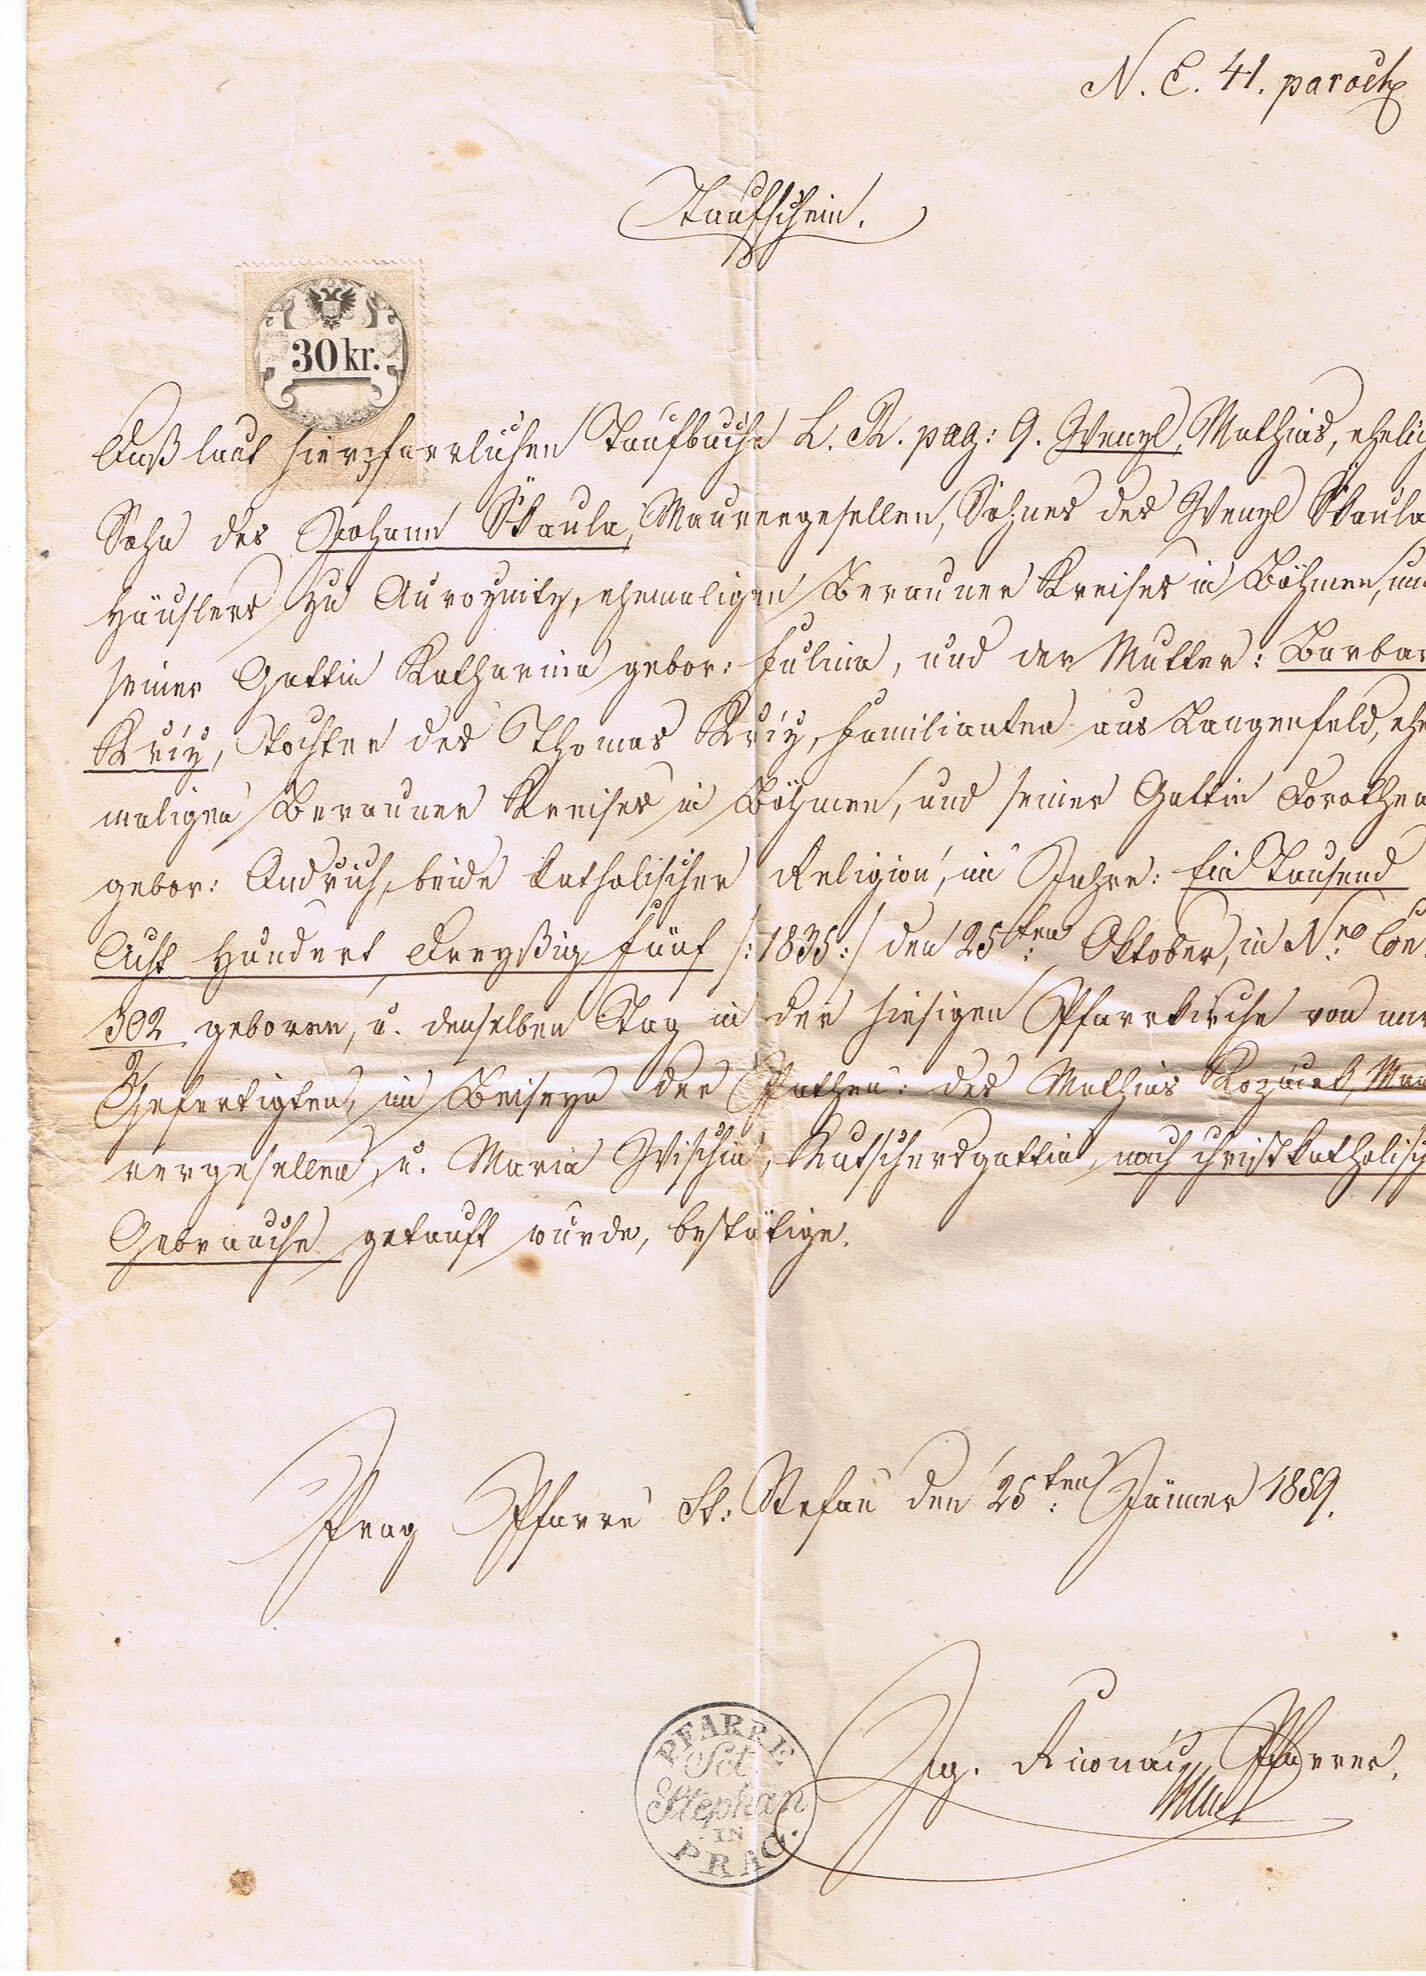 N. E. 41. paroch
Taufschein.
30 kr.
Daß laut hierpfarrlichen Taufbuche L. R. pag: 9. Wenzl Mathias, ehelich
Sohn des Johann Skaula, Maurergesellen, Sohnes des Wenzl Skaula
Häuslers zu Auroznitz, ehemaligen Berauner Kreises in Böhmen, und
seiner Gattin Katharina gebor: Fulina, und der Mutter: Barbar
Kriz, Tochter des Thomas Kriz, Familianten aus Langenfeld, ehe
maligen Berauner Kreises in Böhmen, und seiner Gattin Dorothea
gebor: Andrich, beide katholischer Religion, im Jahre: Ein Tausend
Acht Hundert Dreyßig fünf /:1835:/ den 25ten: Oktober, in Nro: Con.
302 geboren, u. denselben Tag in der hiesigen Pfarrkirche von mir
Gefertigten, im Beiseyn der Pathen: des Mathias Mau
rergesellen, u. Maria Wischin, Kutschersgattin, nach christkatholisch
Gebrauche getauft wurde, bestätige.
Prag Pfarre St: Stefan den 25ten: Jänner 1859.
Ig. Pfarrer.
PFARRE
Sct
Stephan
IN
PRAG.